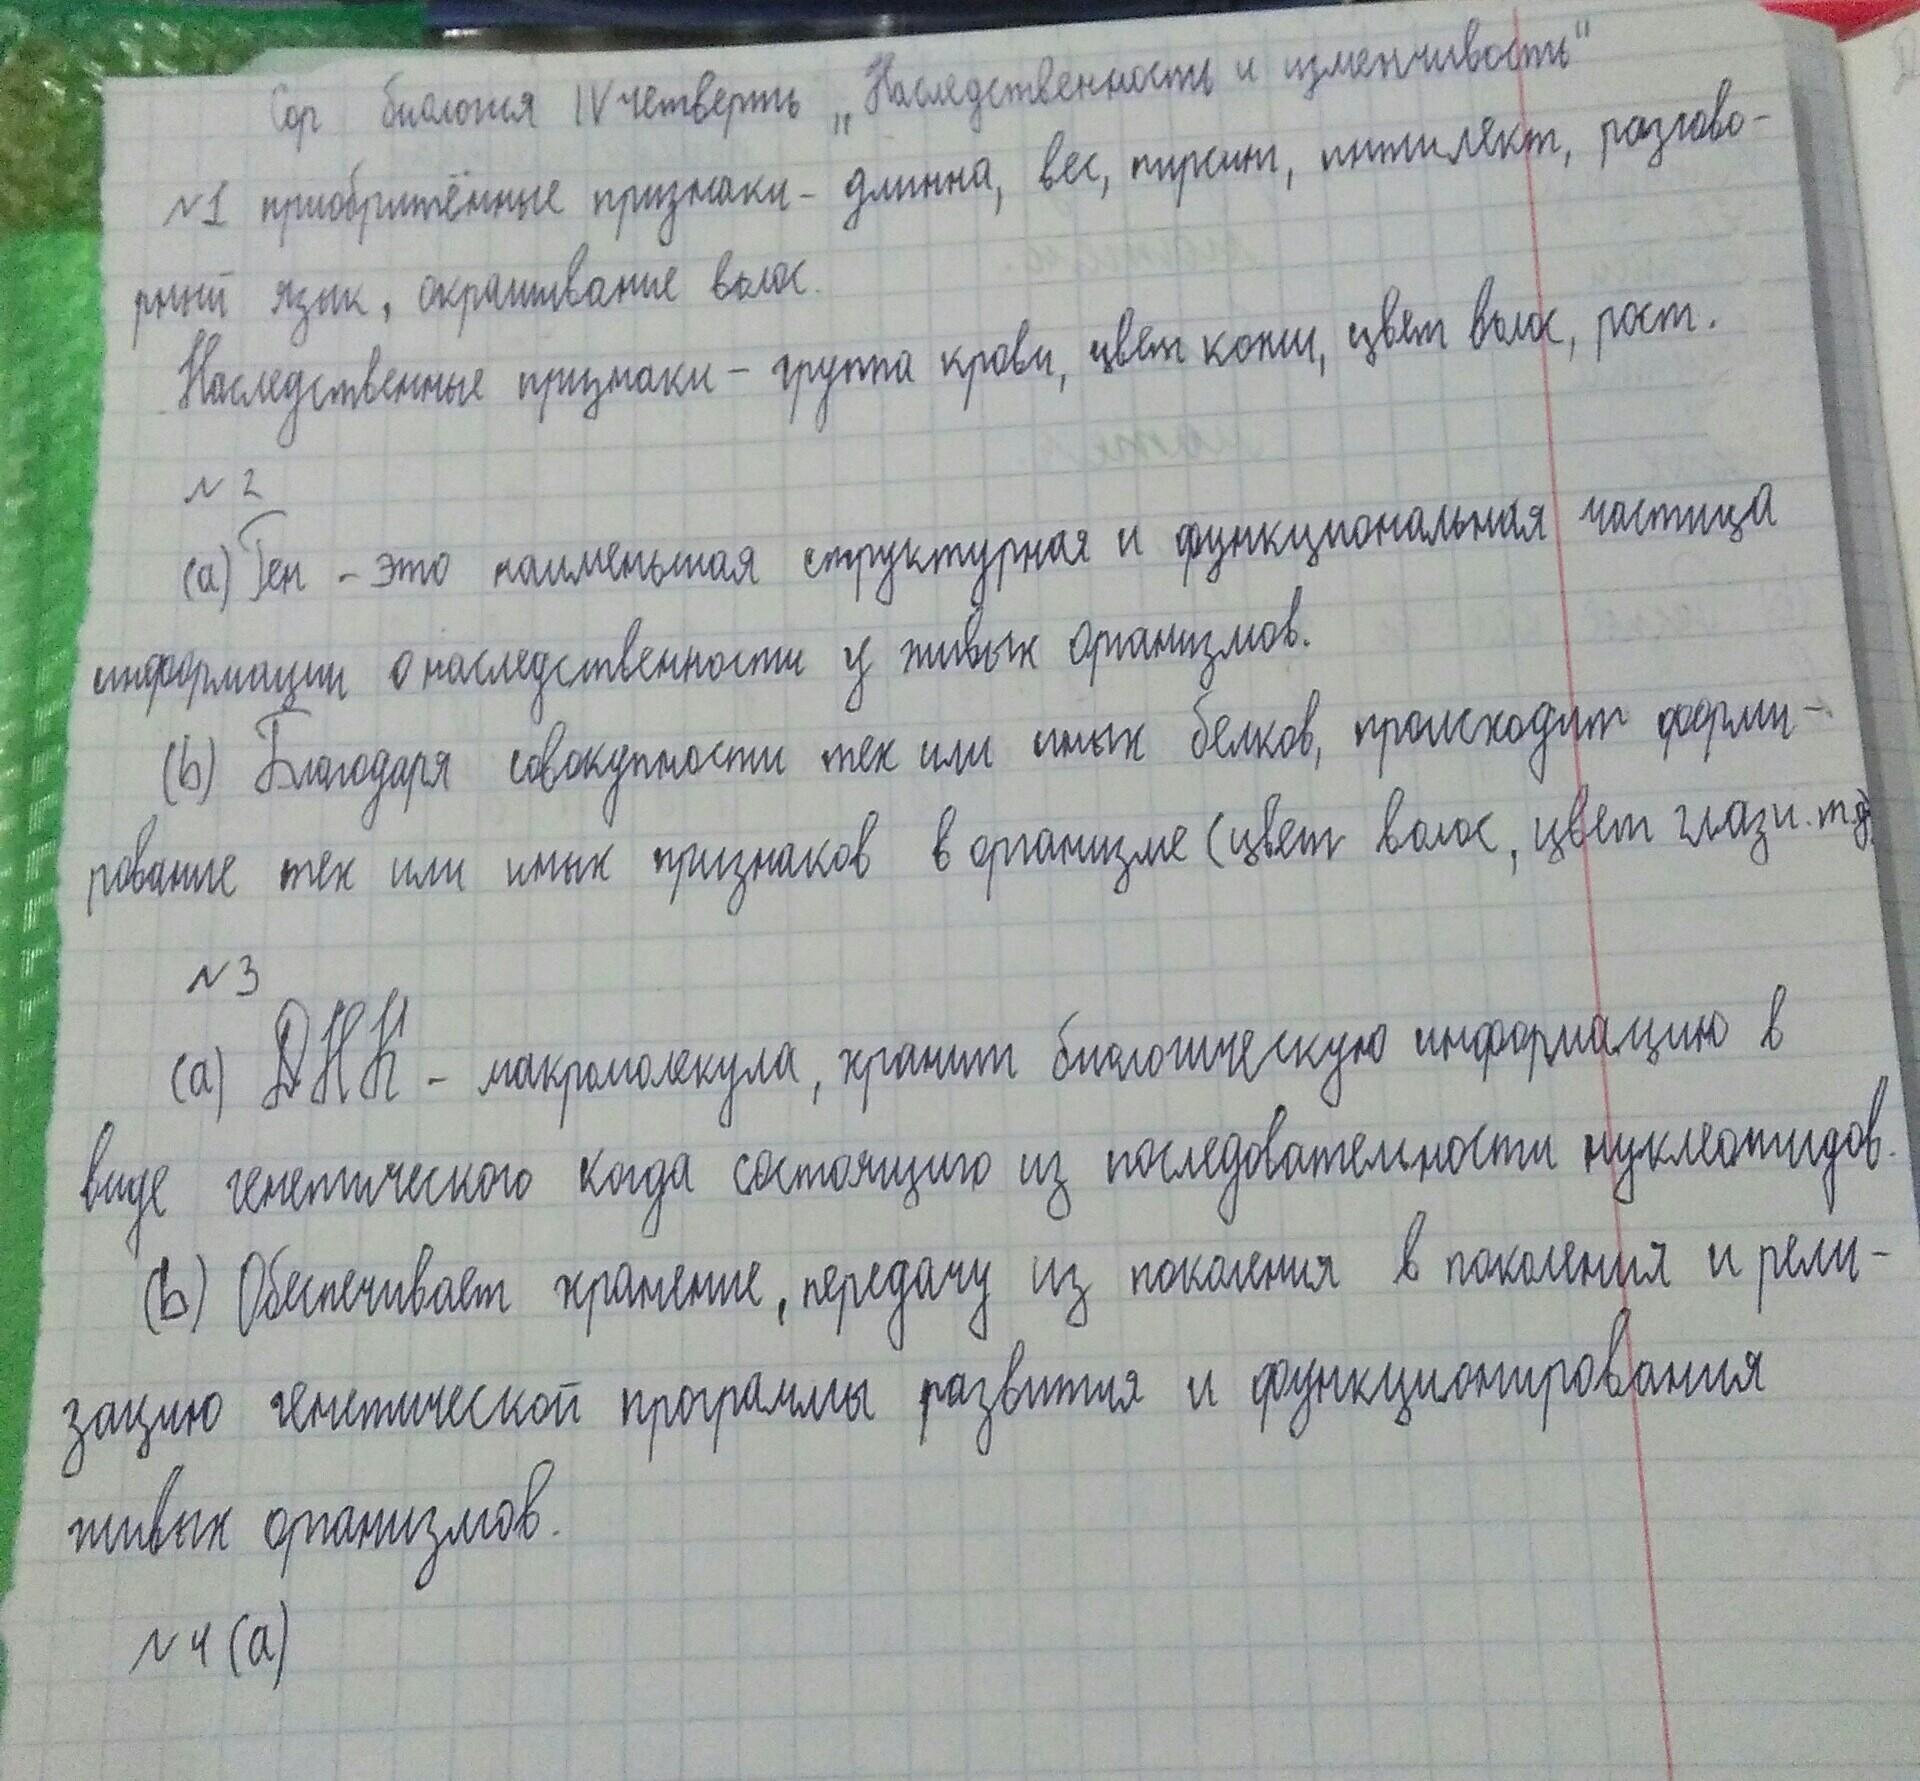 Сор биология IV четверть „Наследственность и изменчивость"
№1 приобритённые признаки - длинна, вес, пирсинг, интилект, разгово-
рный язик, окрашивание волос.
Наследственные признаки - группа крови, цвет кожи, цвет волос, рост.
№2
(a) Ген - это наименьшая структурная и функциональная частица
информации о наследственности у живых организмов.
(b) Благодаря совокупности тех или иных белков, происходит форми-
рование тех или иных признаков в организме (цвет волос, цвет глаз и.тд)
№3
(a) ДНК - макромолекула, хранит биологическую информацию в
виде генетического кода состоящию из последовательности нуклеотидов.
(b) Обеспечивает хранение, передачу из поколения в поколения и рели-
зацию генетической программы развития и функционирования
живых организмов.
№4 (a)